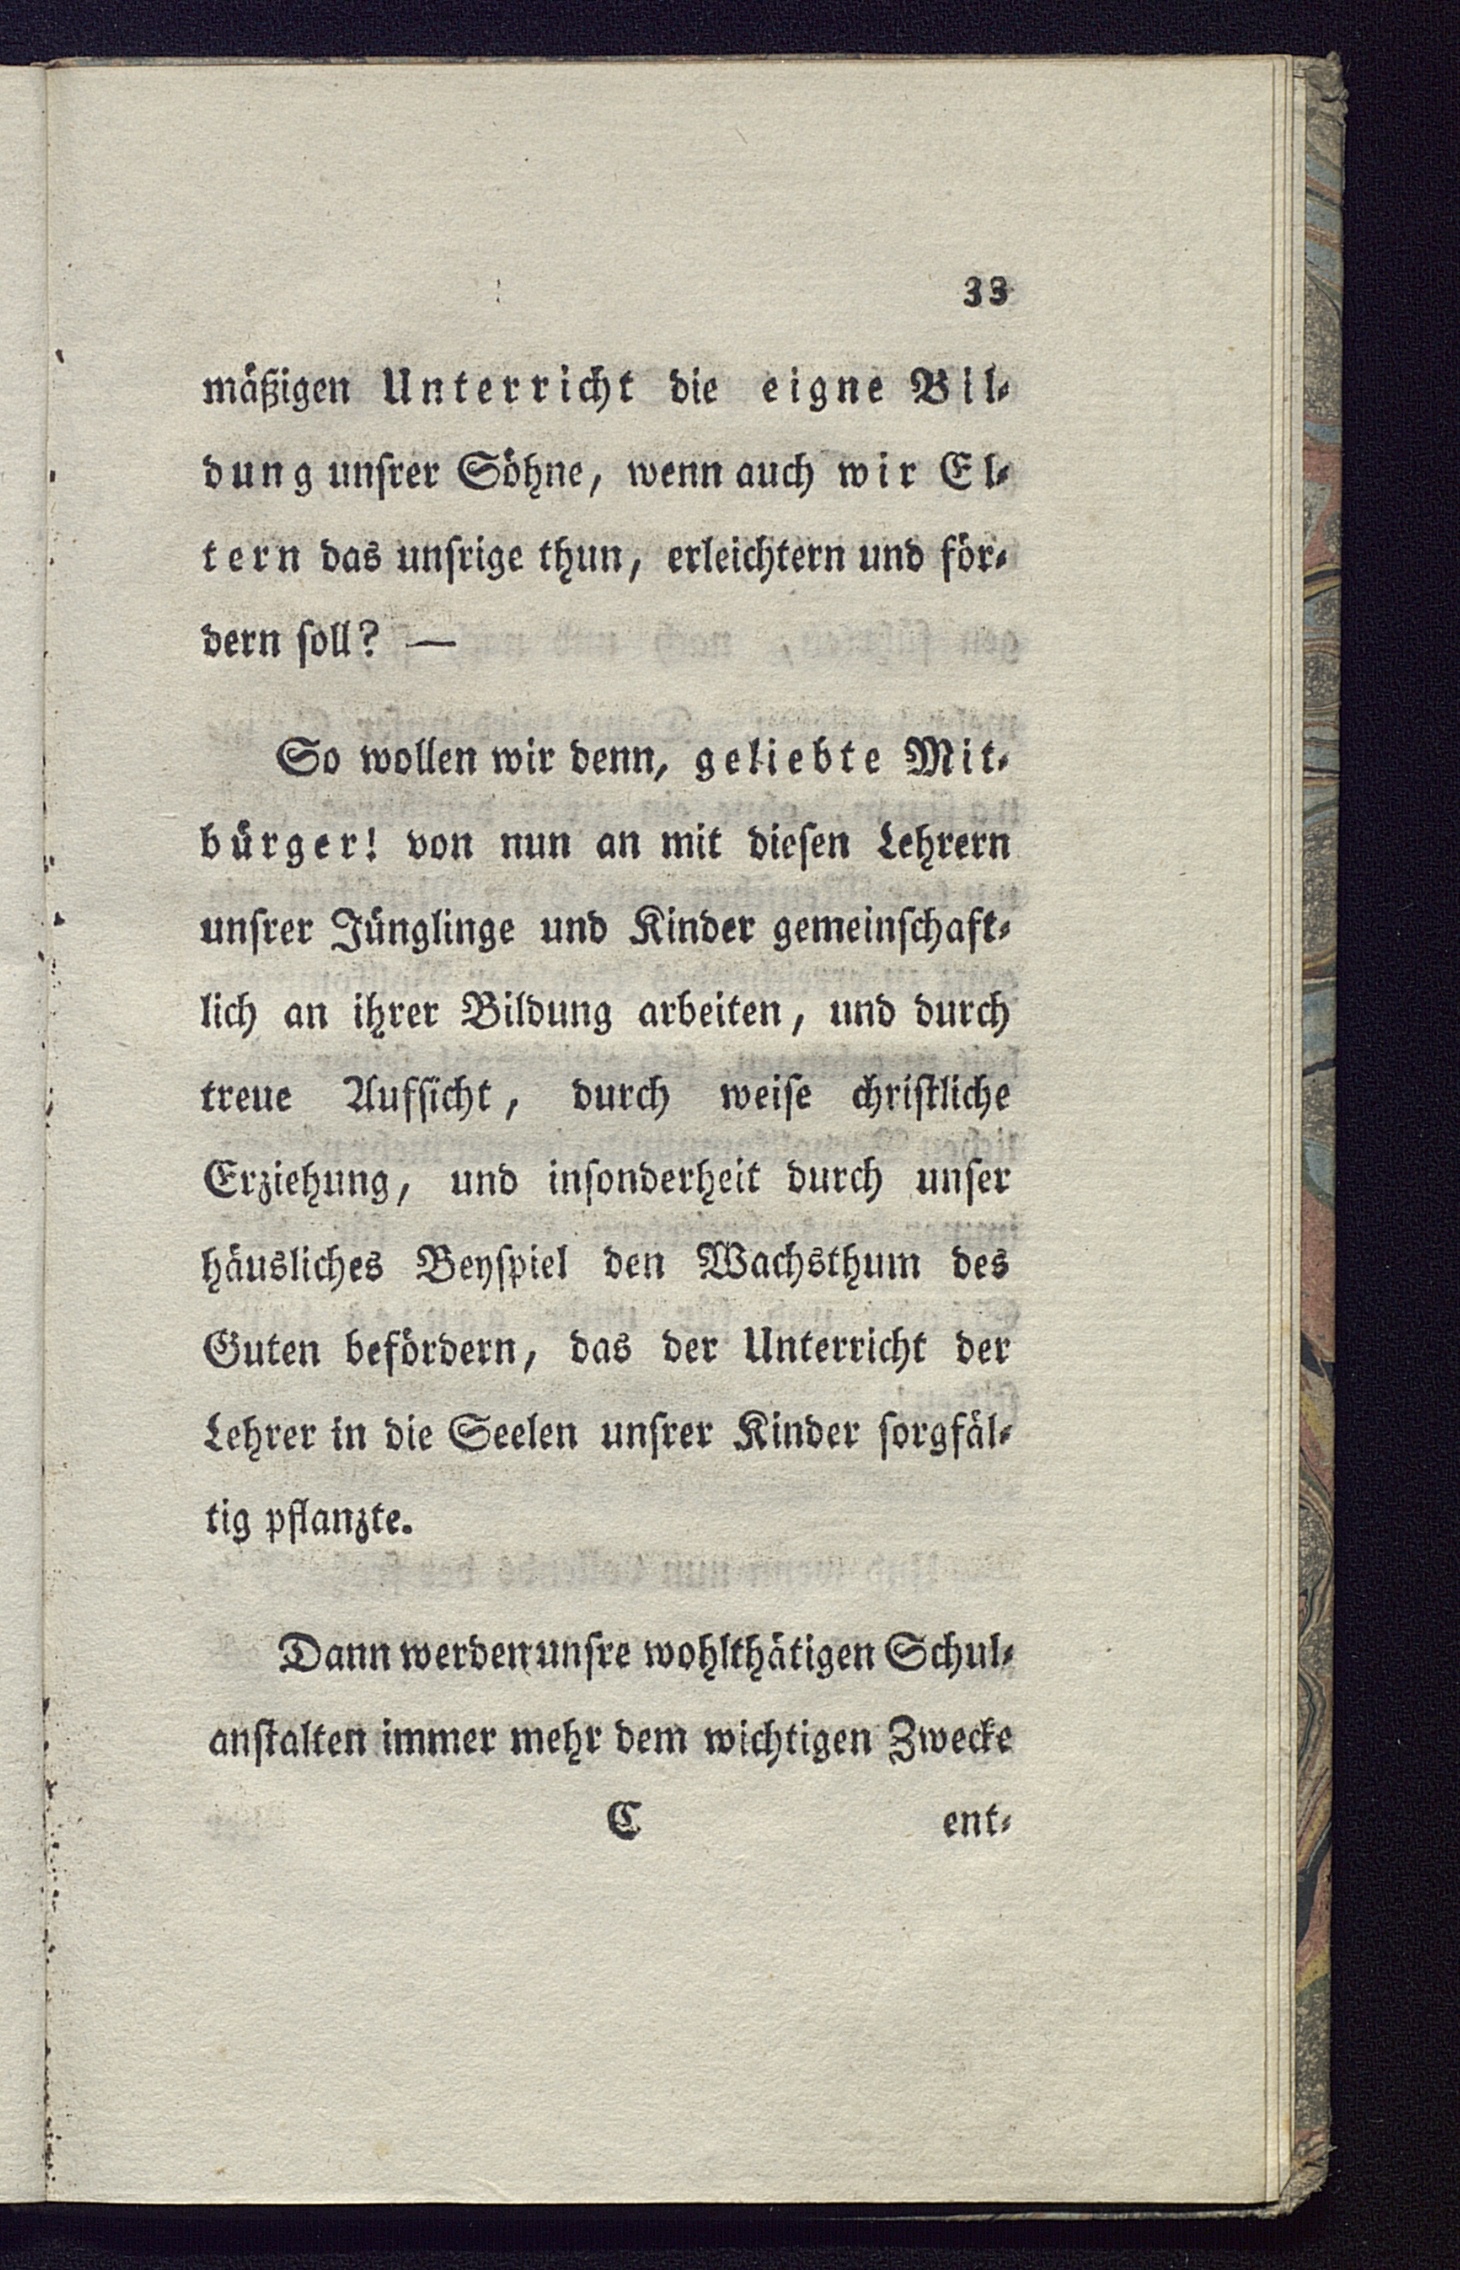 33
mäßigen Unterricht die eigne Bil⸗
dung unsrer Söhne, wenn auch wir El⸗
tern das unsrige thun, erleichtern und för⸗
dern soll? —
So wollen wir denn, geliebte Mit⸗
bürger! von nun an mit diesen Lehrern
unsrer Jünglinge und Kinder gemeinschaft⸗
lich an ihrer Bildung arbeiten, und durch
treue Aufsicht, durch weise christliche
Erziehung, und insonderheit durch unser
häusliches Beyspiel den Wachsthum des
Guten befördern, das der Unterricht der
Lehrer in die Seelen unsrer Kinder sorgfäl⸗
tig pflanzte.
Dann werden unsre wohlthätigen Schul⸗
anstalten immer mehr dem wichtigen Zwecke
C ent⸗